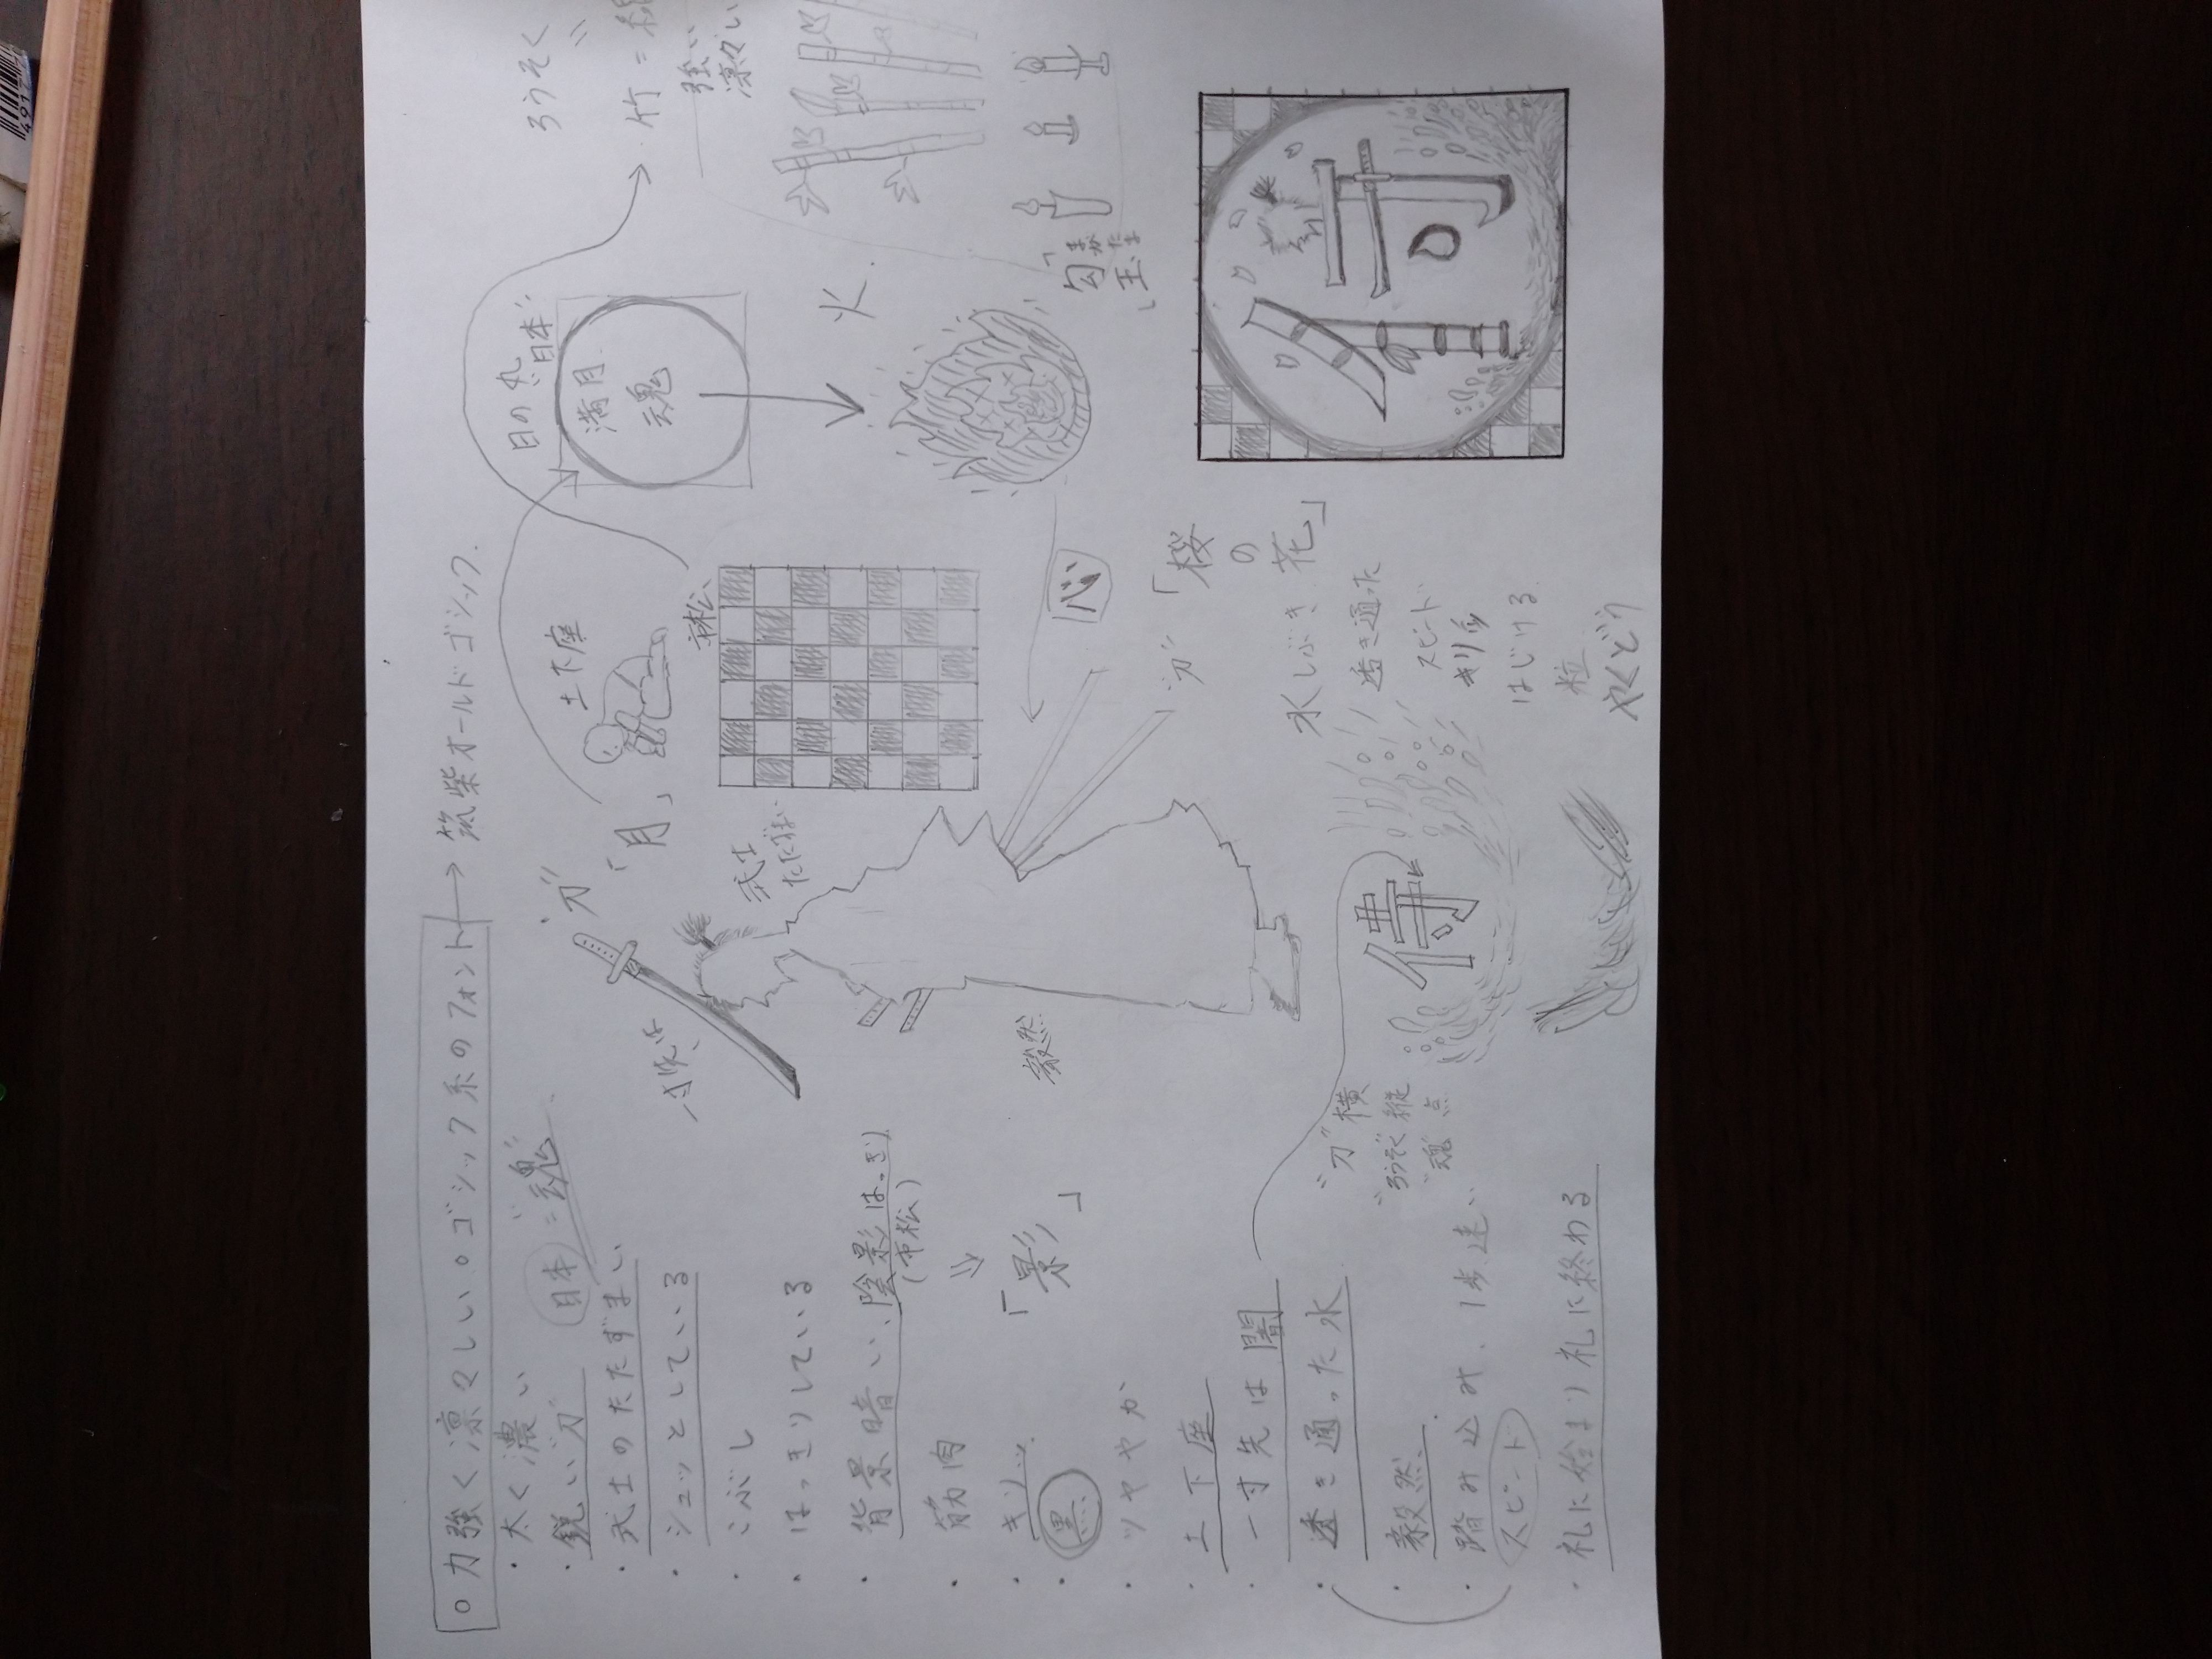 ○力強く凛々しい ○ゴシック系のフォント → 筑柴オールドゴシック.
・太く濃い
・鋭い"刀"
日本 = "魂"
・武士のたたずまい
・シュッとしている
・こぶし
・はっきりしている
・背景暗い、陰影はっきり
(市松)
⇓
「影」
・筋肉
・キリッ
・黒
・ツヤやか
・土下座
・一寸先は闇
・透き通った水
・毅然
・踏み込み、1歩速い
スピード
・礼に始まり礼に終わる
"刀"
一寸先は
武士
たたずまい
毅然
"刀"
「月」
土下座
市松
日の丸
"日本"
満月
魂
火
心
ろうそく
竹 =
強い
凛々しい
「勾玉」
まがたま
「桜の花」
"刀" 横
"ろうそく" 縦
"魂" 点
侍
水しぶき
透き通った
スピード
はじける
粒
やくどう
侍
4917